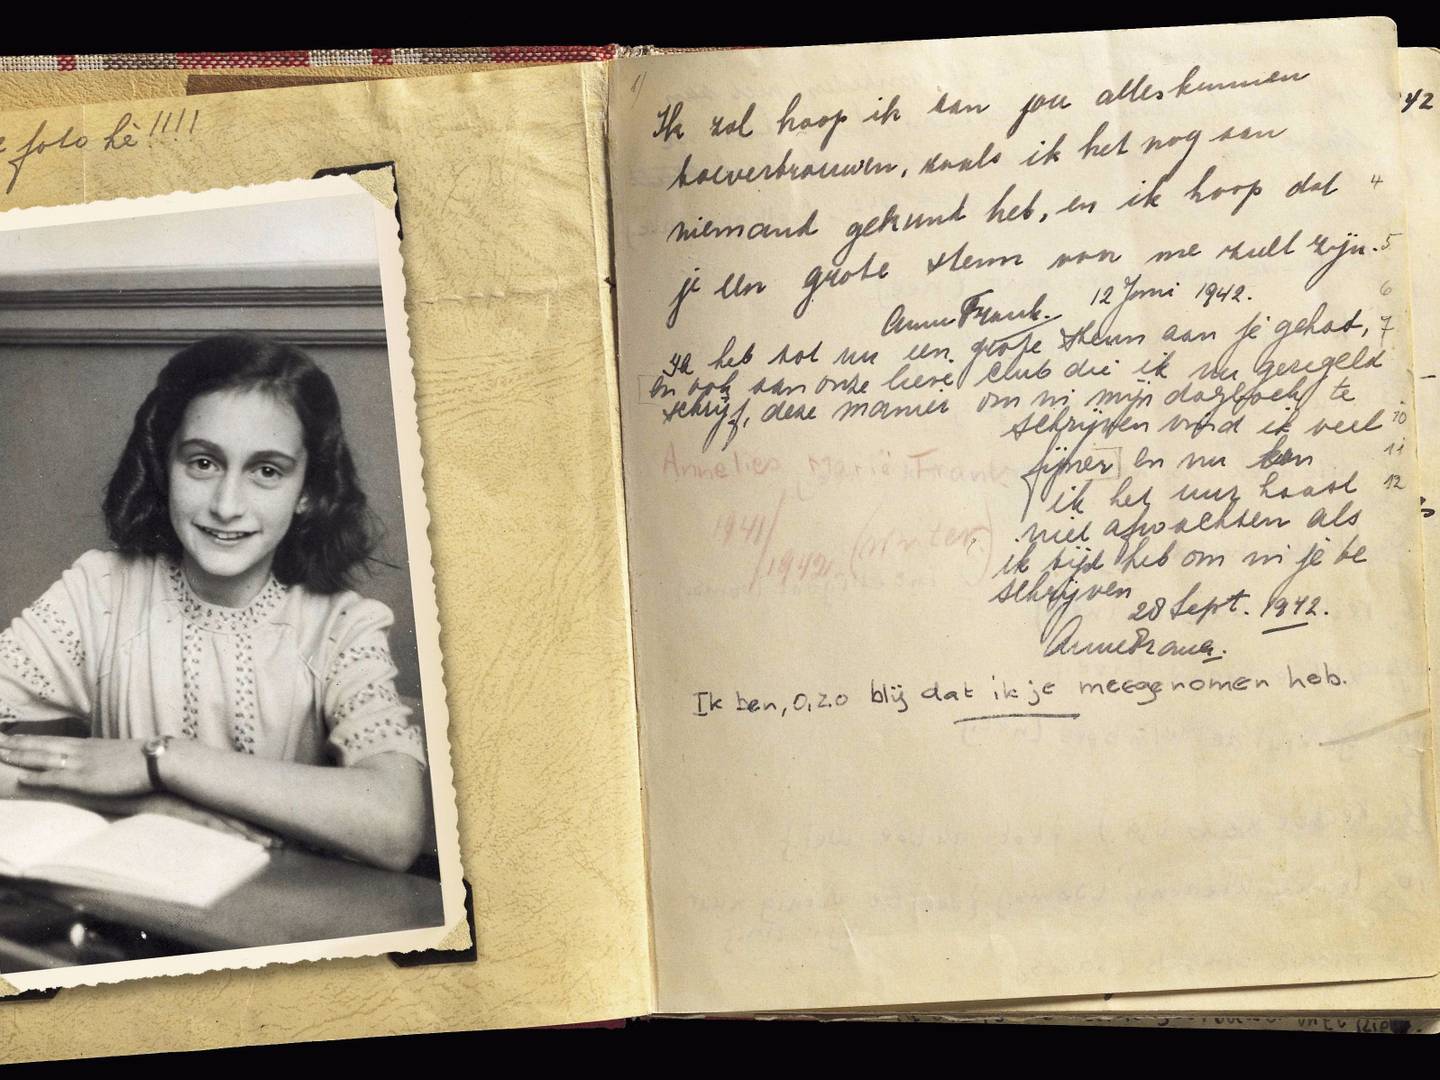 foto hè!!!!
1)
Ik zal hoop ik aan jou alles kunnen
toevertrouwen, zoals ik het nog aan
niemand gekund heb, en ik hoop dat
je een grote steun voor me zult zijn.
Anne Frank. 12 Juni 1942.
Ik heb tot nu een grote steun aan je gehad,
en ook aan onze lieve club die ik nu geregeld
schrijf, deze manier om in mijn dagboek te
schrijven vind ik veel
fijner en nu kan
ik het uur haast
niet afwachten als
ik tijd heb om in je te
schrijven
28 Sept. 1942.
Anne Frank.
Ik ben, o, zo blij dat ik je meegenomen heb.
Annelies Marie Frank
1941/
1942 (winter)
4
5
6
7
10
11
12
42